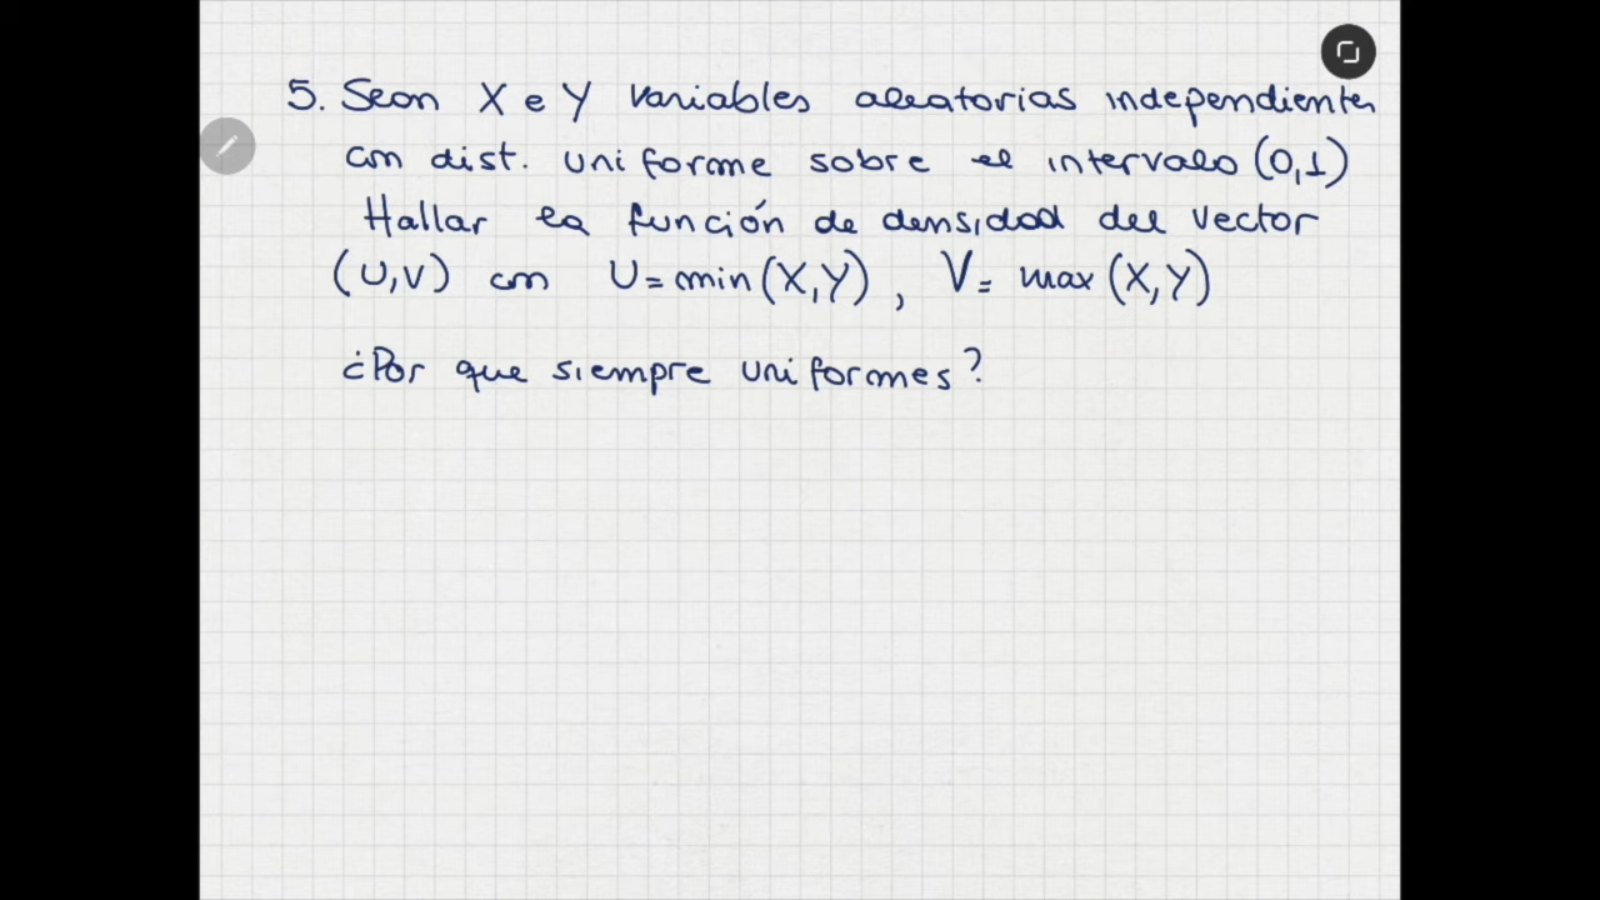 5. Sean X e Y variables aleatorias independientes
con dist. uniforme sobre el intervalo (0,1)
Hallar la función de densidad del vector
(U,V) con U=min(X,Y), V= max(X,Y)
¿Por que siempre uniformes?